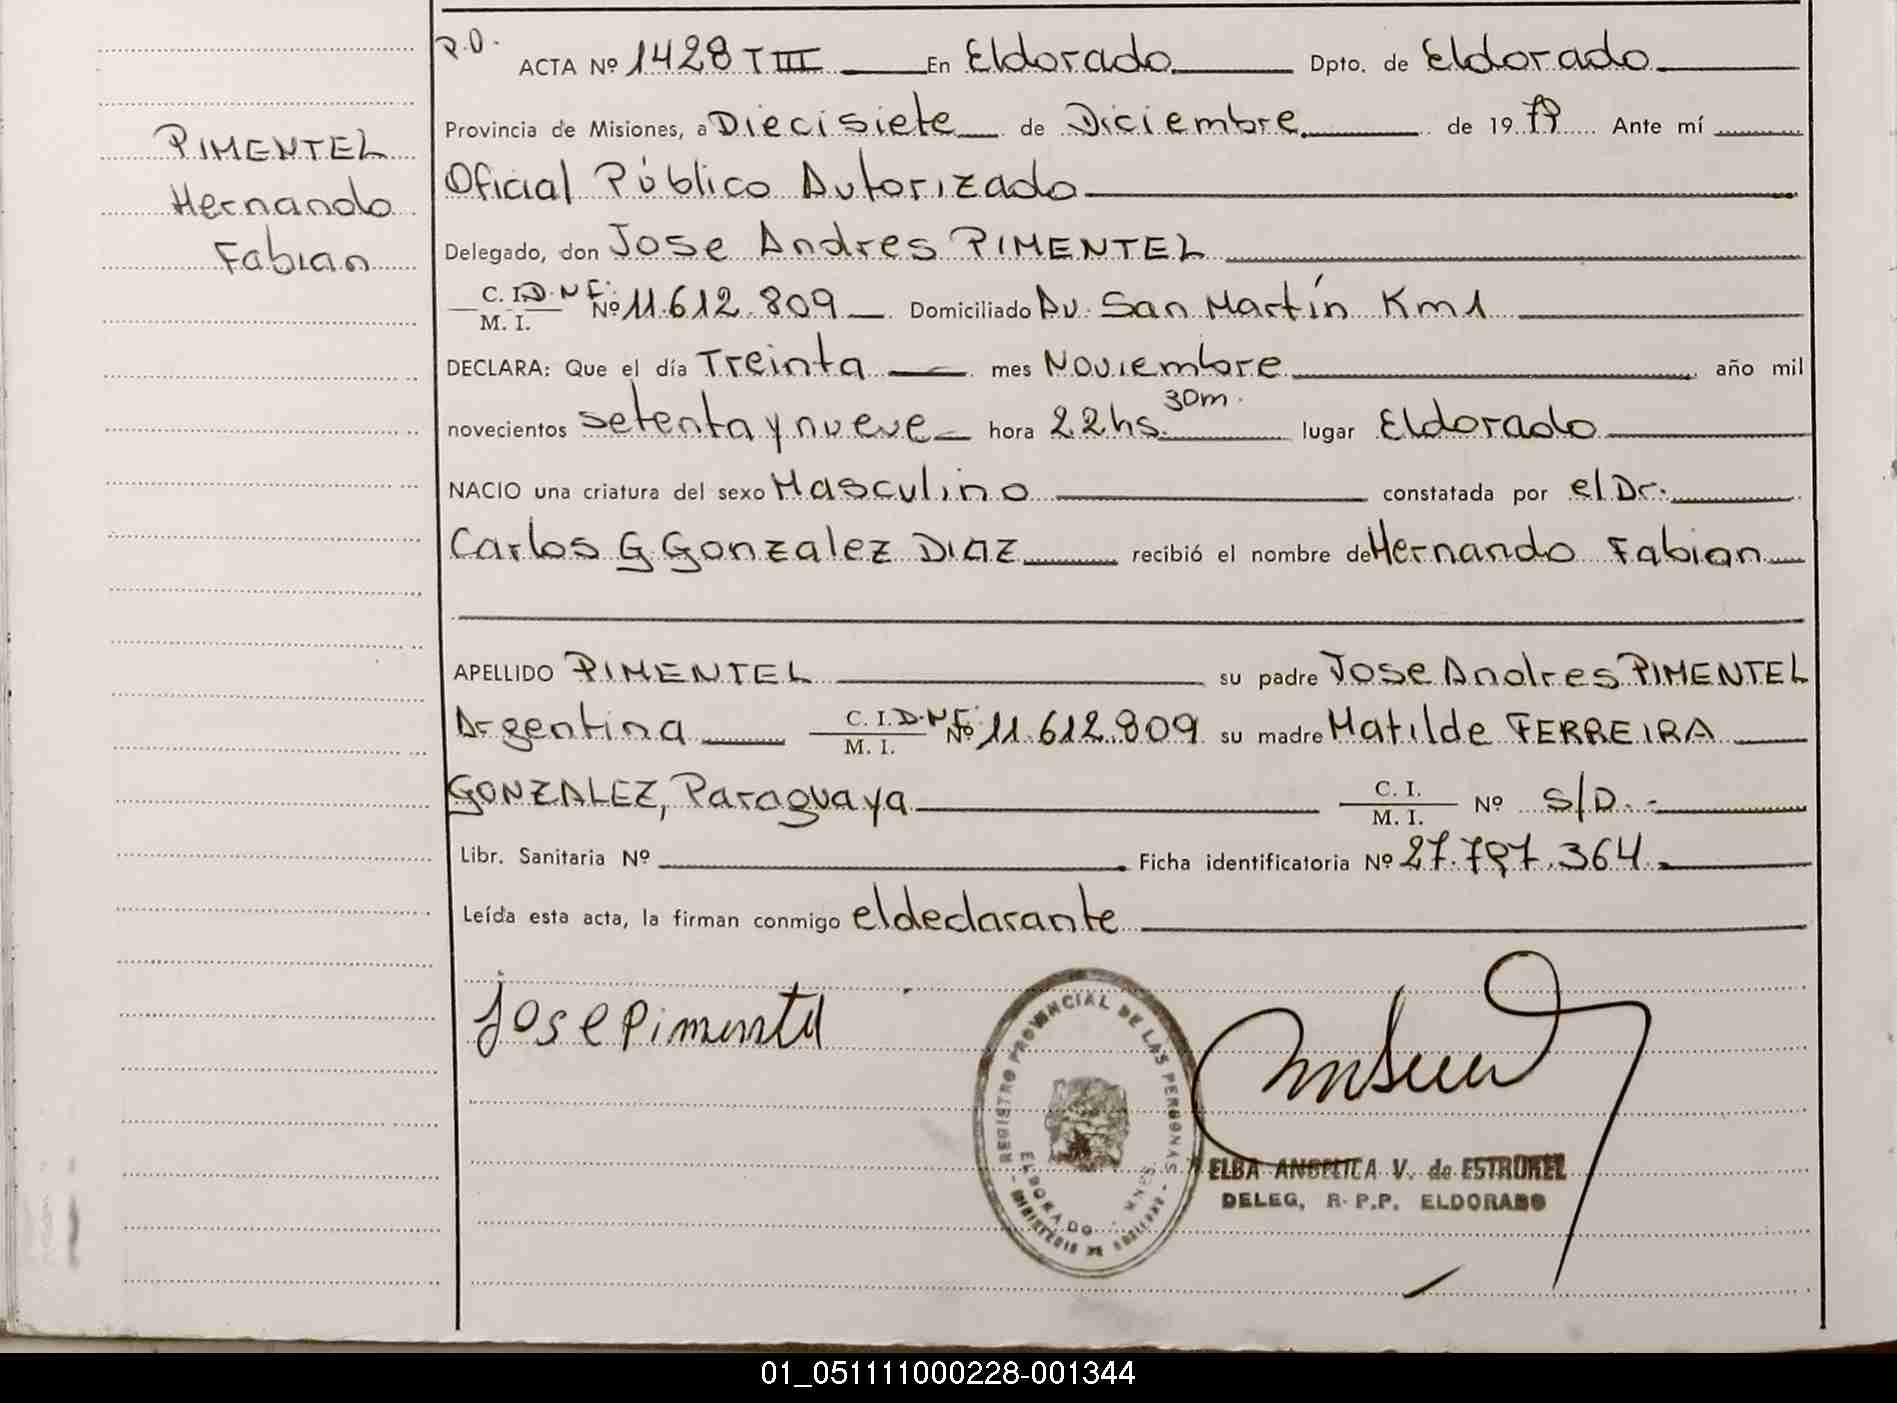 R.D. ACTA Nº 1428 T III En Eldorado Dpto. de Eldorado
Provincia de Misiones, a Diecisiete de Diciembre de 1979 Ante mí
Oficial Público Autorizado
Delegado, don Jose Andres PIMENTEL
C. I. D.N.I. Nº 11.612.809 Domiciliado Av. San Martín Km1
M. I.
DECLARA: Que el día Treinta mes Noviembre año mil
novecientos setenta y nueve hora 22 hs. 30m. lugar Eldorado
NACIO una criatura del sexo Masculino constatada por el Dr.
Carlos G Gonzalez Diaz recibió el nombre de Hernando Fabian
APELLIDO PIMENTEL su padre Jose Andres PIMENTEL
Argentina C. I. D.N.I. Nº 11.612.809 su madre Matilde FERREIRA
M. I.
GONZALEZ, Paraguaya C. I. Nº S/D.-
M. I.
Libr. Sanitaria Nº Ficha identificatoria Nº 27.797.364.
Leída esta acta, la firman conmigo el declarante
PIMENTEL
Hernando
Fabian
Jose Pimentel
REGISTRO PROVINCIAL DE LAS PERSONAS
ELDORADO - MNES
MINISTERIO DE GOBIERNO
ELBA ANGELICA V. de ESTRUKEL
DELEG, R. P.P. ELDORADO
01_051111000228-001344